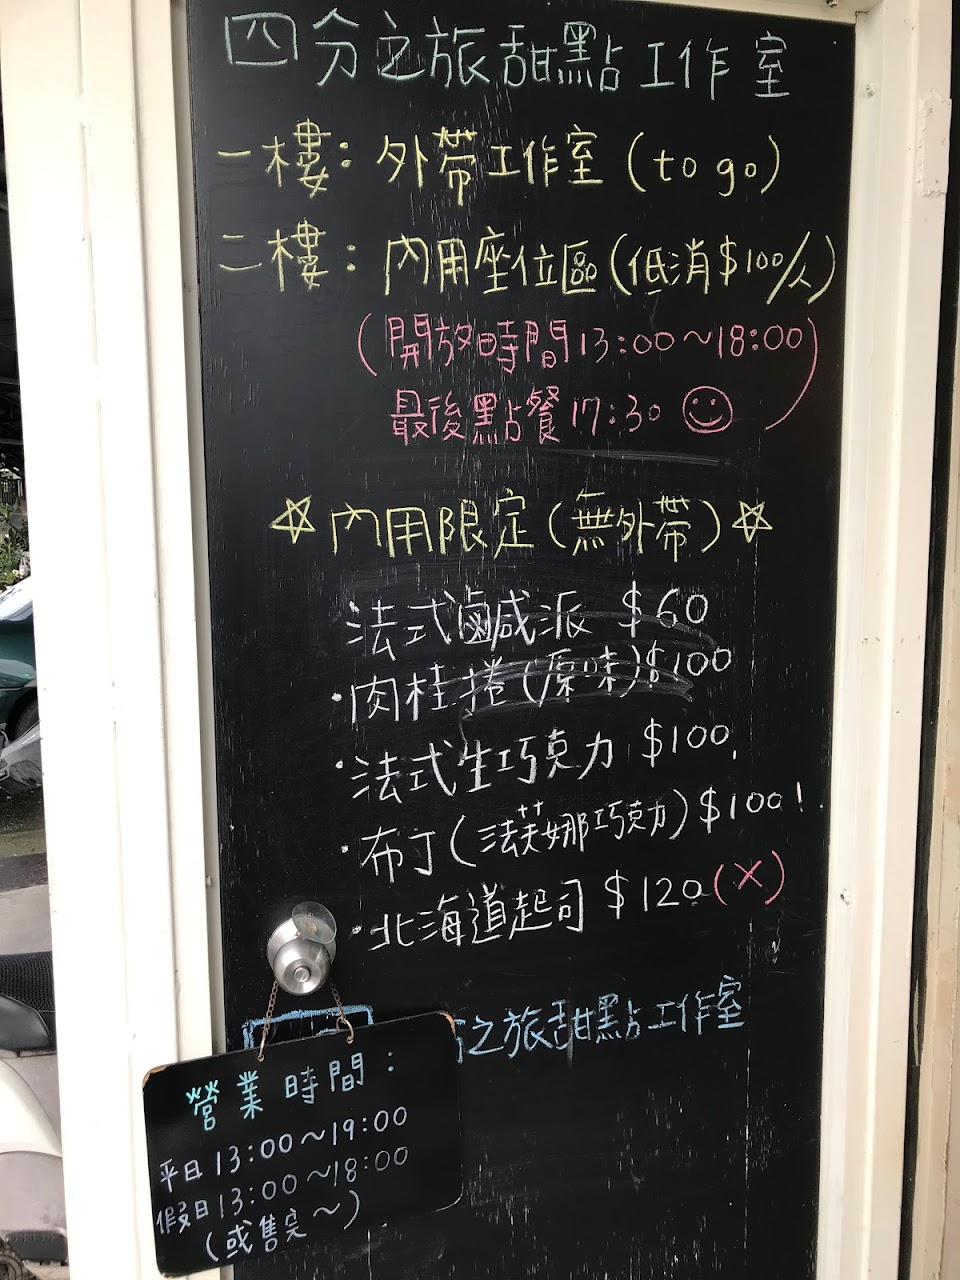 四分之旅甜點工作室
一樓：外帶工作室(to go)
二樓：內用座位區(低消$100/人)
(開放時間13:00~18:00
最後點餐17:30)
☆內用限定(無外帶)☆
法式鹹派 $60
·肉桂捲(原味)$100
·法式生巧克力 $100
·布丁(法芙娜巧克力)$100!
·北海道起司 $120(X)
之旅甜點工作室
營業時間：
平日13:00~19:00
假日13:00~18:00
(或售完~)